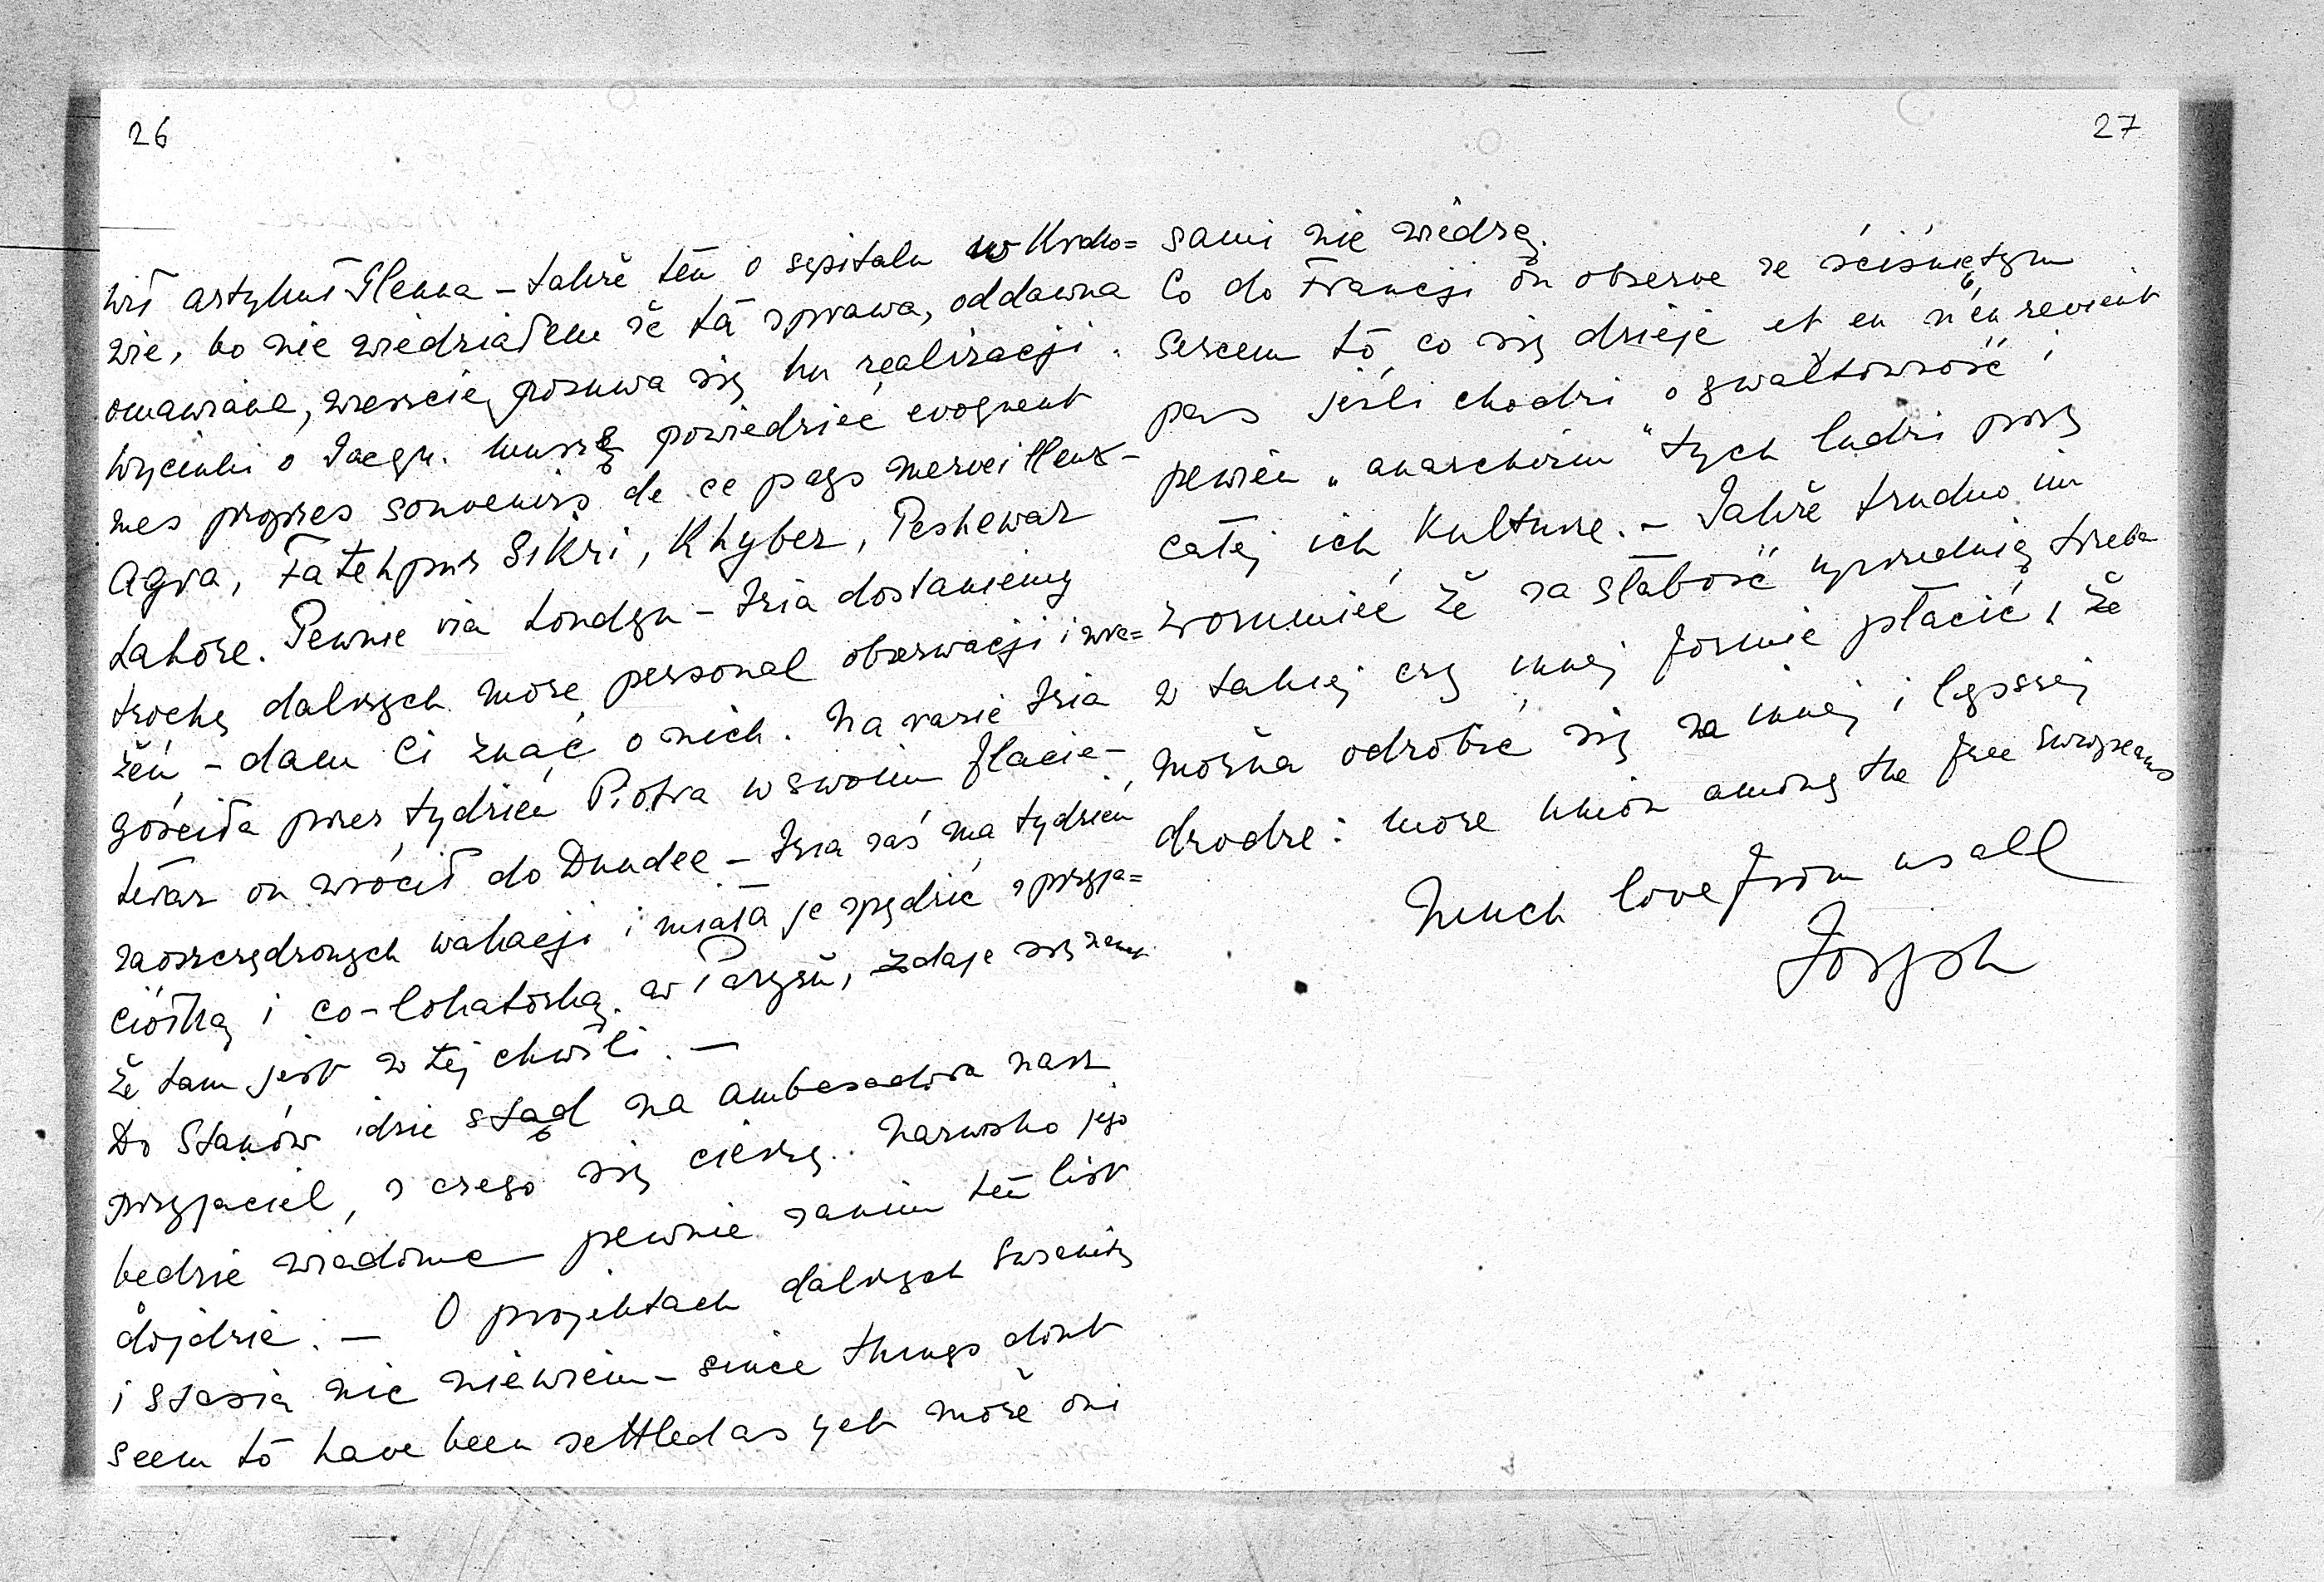 26
wił artykuł Glenna – także ten o szpitalu w Krako=
wie, bo nie wiedziałem że ta sprawa, oddawna
omawiana, wreszcie posuwa się ku realizacji.
Wycinki o Jacqu. muszę powiedzieć evoquent
mes propres souvenirs de ce pays merveilleux –
Agra, Fatehpur Sikri, Khyber, Peshewar
Lahore. Pewnie via Londyn – Izia dostaniemy
trochę dalszych more personal obserwacji i wra=
żeń – dam Ci znać o nich. Na razie Izia
gościła przez tydzień Piotra w swoim flacie –
teraz on wrócił do Dundee – Izia zaś ma tydzień
zaoszczędzonych wakacji i miała je spędzić z przyja=
ciółką i co-lokatorką w Paryżu, zdaje się
że tam jest w tej chwili. –
Do Stanów idzie stąd na ambasadora nasz
przyjaciel, z czego się cieszę. Nazwisko jego
będzie wiadome pewnie zanim ten list
dojdzie. – O projektach dalszych
i Stasia nic nie wiem – since things dont
seem to have been settled as yet może oni
27
sami nie wiedzą.
Co do Francji on observe ze ściśniętym
sercem to, co się dzieje et en n'en revient
pas jeśli chodzi o gwałtowność i
pewien „anarchizm" tych ludzi przy
całej ich kulturze. – Także trudno im
zrozumieć że za słabość uprzednią trzeba
w takiej czy innej formie płacić, że
można odrobić się na innej i lepszej
drodze: more union among the free Europeans
Much love from us all
Joseph